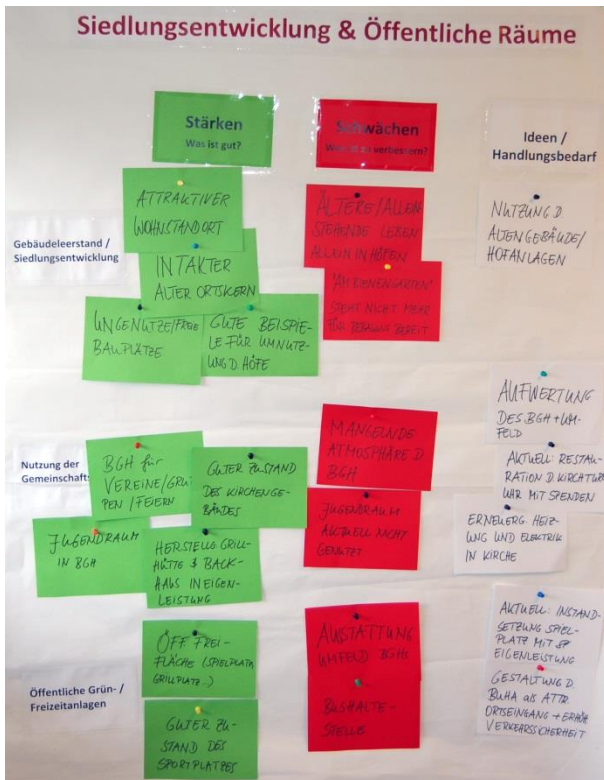 Siedlungsentwicklung & Öffentliche Räume
Stärken
Was ist gut?
Schwächen
Was ist zu verbessern?
Ideen /
Handlungsbedarf
Gebäudeleerstand /
Siedlungsentwicklung
ATTRAKTIVER
WOHNSTANDORT
INTAKTER
ALTER ORTSKERN
UNGENUTZE/FREIE
BAUPLÄTZE
GUTE BEISPIE-
LE FÜR UMNUTZ-
UNG D. HÖFE
ÄLTERE/ALLEIN
STEHENDE LEBEN
ALLEIN IN HÖFEN
STEHT NICHT MEHR
FÜR BEBAUUNG BEREIT
NUTZUNG D.
ALTENGEBÄUDE/
HOFANLAGEN
Nutzung der
Gemeinschafts
BGH für
VEREINE/GRUP
PEN/FEIERN
GUTER ZUSTAND
DES KIRCHENGE-
BÄUDES
JUGENDRAUM
IN BGH
HERSTELLG. GRILL-
HÜTTE & BACK-
HAUS IN EIGEN-
LEISTUNG
MANGELNDE
ATMOSPHÄRE D
BGH
JUGENDRAUM
AKTUELL NICHT
GENUTZT
AUFWERTUNG
DES BGH + UM-
FELD
AKTUELL: RESTAU-
RATION D. KIRCHTURM
UHR MIT SPENDEN
ERNEUERG. HEIZ-
UNG UND ELEKTRIK
IN KIRCHE
Öffentliche Grün- /
Freizeitanlagen
ÖFF. FREI-
FLÄCHE (SPIELPLATZ,
GRILLPLATZ..)
GUTER ZU-
STAND DES
SPORTPLATZES
AUSSTATTUNG
UMFELD BGHs
BUSHALTE-
STELLE
AKTUELL: INSTAND-
SETZUNG SPIEL-
PLATZ MIT
EIGENLEISTUNG
GESTALTUNG D.
BUHA als ATTR.
ORTSEINGANG + ERHÖH
VERKEHRSSICHERHEIT